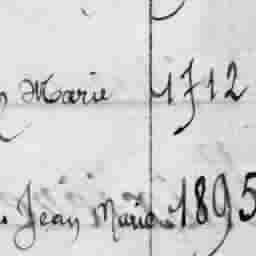 Marie 1712
Jean Marie 1895